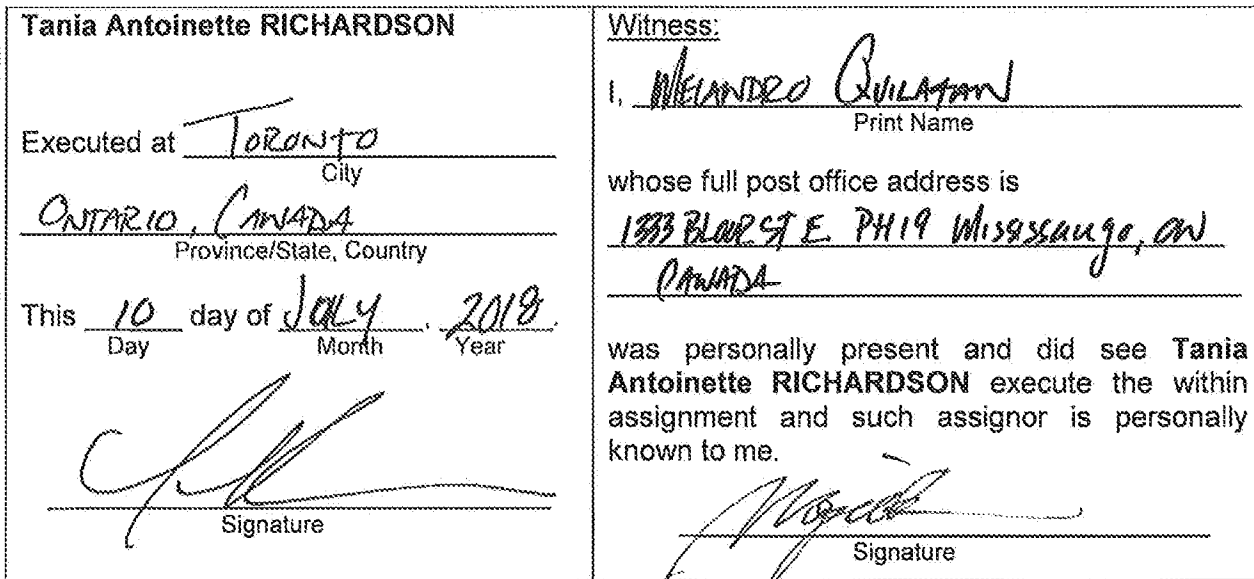 Tania Antoinette RICHARDSON
Executed at TORONTO
City
ONTARIO, CANADA
Province/State, Country
This 10 day of JULY, 2018.
Day Month Year
Signature
Witness:
I, MELANDRO QUILATAN
Print Name
whose full post office address is
1333 BLOOR ST E. PH19 Mississauga, ON
CANADA
was personally present and did see Tania
Antoinette RICHARDSON execute the within
assignment and such assignor is personally
known to me.
Signature